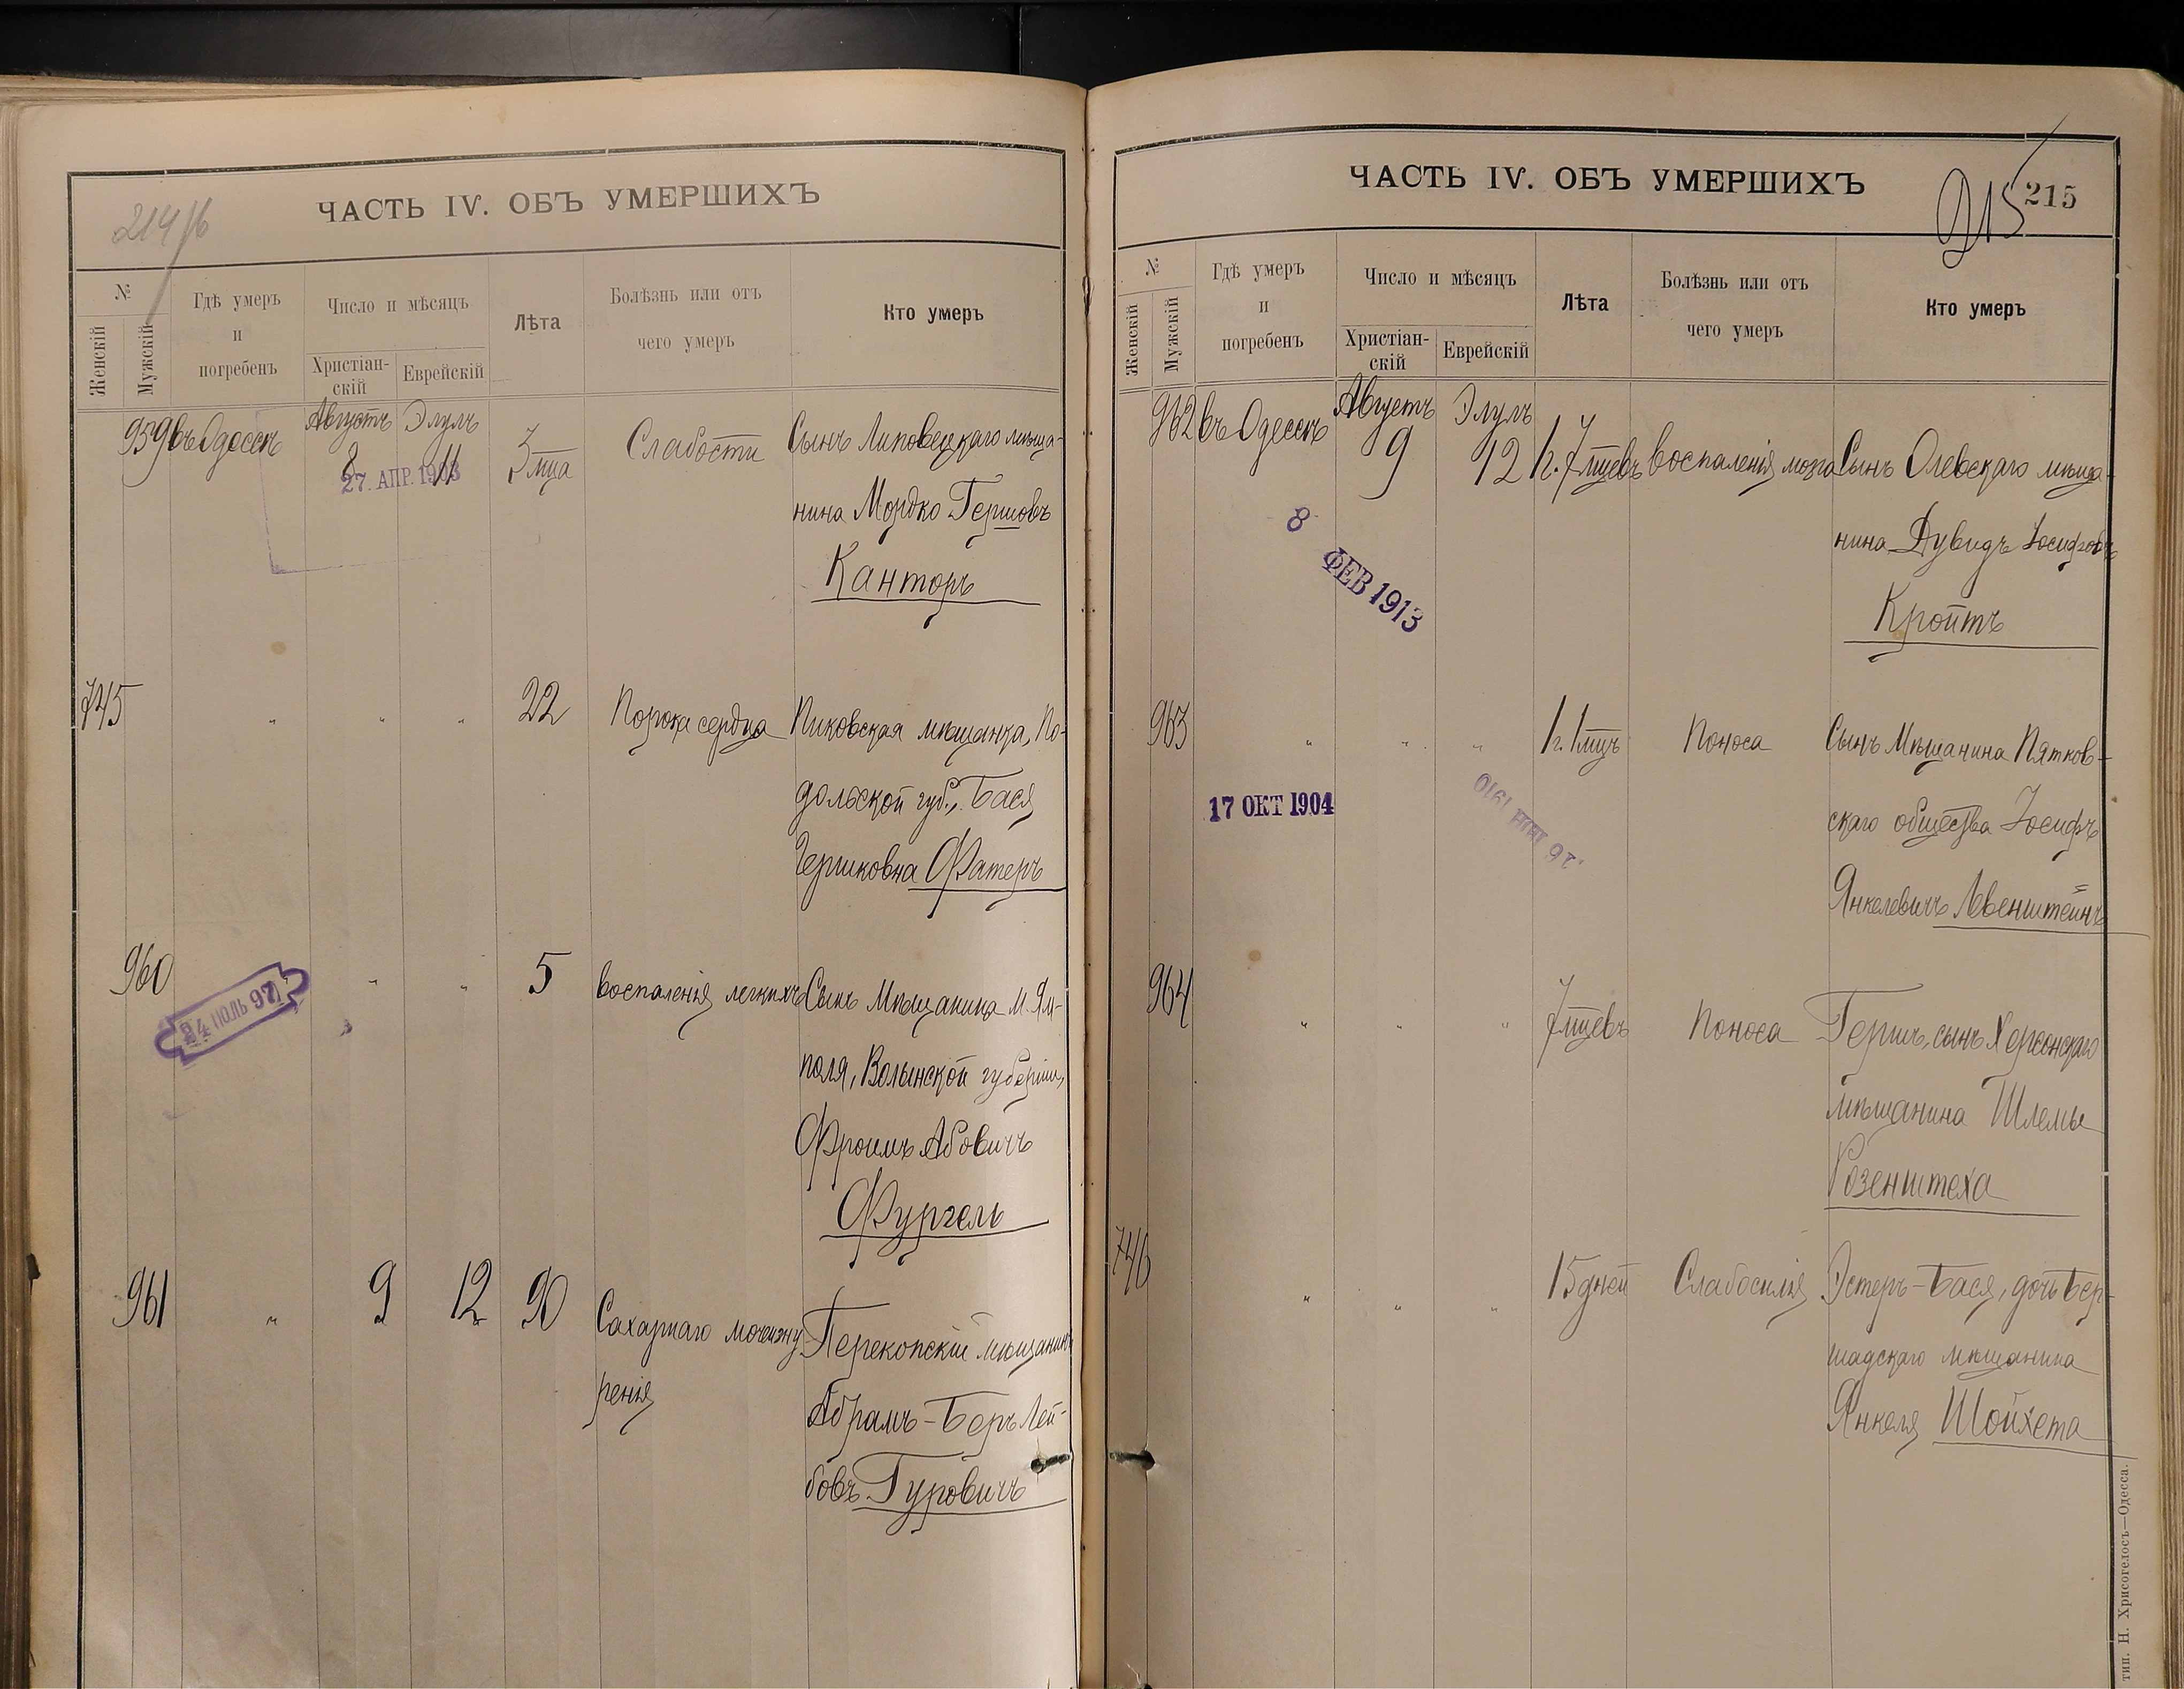 214/б
ЧАСТЬ IV. ОБЪ УМЕРШИХЪ
№
Женскій
Мужскій
Гдѣ умеръ
и
погребенъ
Число и мѣсяцъ
Христіан-
скій
Еврейскій
Лѣта
Болѣзнь или отъ
чего умеръ
Кто умеръ
959 въ Одессѣ Августъ 8 Элулъ 11 3 мца Слабости Сынъ Липовецкаго мѣща-
27. АПР. 1903
нина Мордко Гершовъ
Канторъ
745 " " " 22 Порока сердца Пиковская мѣщанка, По-
дольской губ., Бася
Гершковна Фатеръ
960 " " 5 воспаленія легкихъ Сынъ Мѣщанина м. Ям-
24 ІЮЛЬ 97
поля, Волынской губерніи,
Фроимъ Абовичъ
Фургель
961 " 9 12 90 Сахарнаго мочеизну Перекопскій мѣщанинъ
ренія
Абрамъ-Беръ Лей-
бовъ Гуровичъ
ЧАСТЬ IV. ОБЪ УМЕРШИХЪ
215
215
№
Женскій
Мужскій
Гдѣ умеръ
и
погребенъ
Число и мѣсяцъ
Христіан-
скій
Еврейскій
Лѣта
Болѣзнь или отъ
чего умеръ
Кто умеръ
962 въ Одессѣ Августъ 9 Элулъ 12 1 г. 7 мцевъ воспаленія мозга Сынъ Олевскаго мѣща-
8 ФЕВ 1913
нина Дувидъ Іосифовъ
Кройтъ
963 " " " 1 г. 1 мцъ Поноса Сынъ Мѣщанина Пятков-
17 ОКТ 1904
скаго общества Іосифъ
Янкелевичъ Левенштейнъ
964 " " " 7 мцевъ Поноса Гершъ, сынъ Херсонскаго
мѣщанина Шлемы
Розенштеха
746 " " " 15 дней Слабосилія Эстеръ-Бася, дочь Бер-
шадскаго мѣщанина
Янкеля Шойхета
тип. Н. Хрисогелосъ—Одесса.